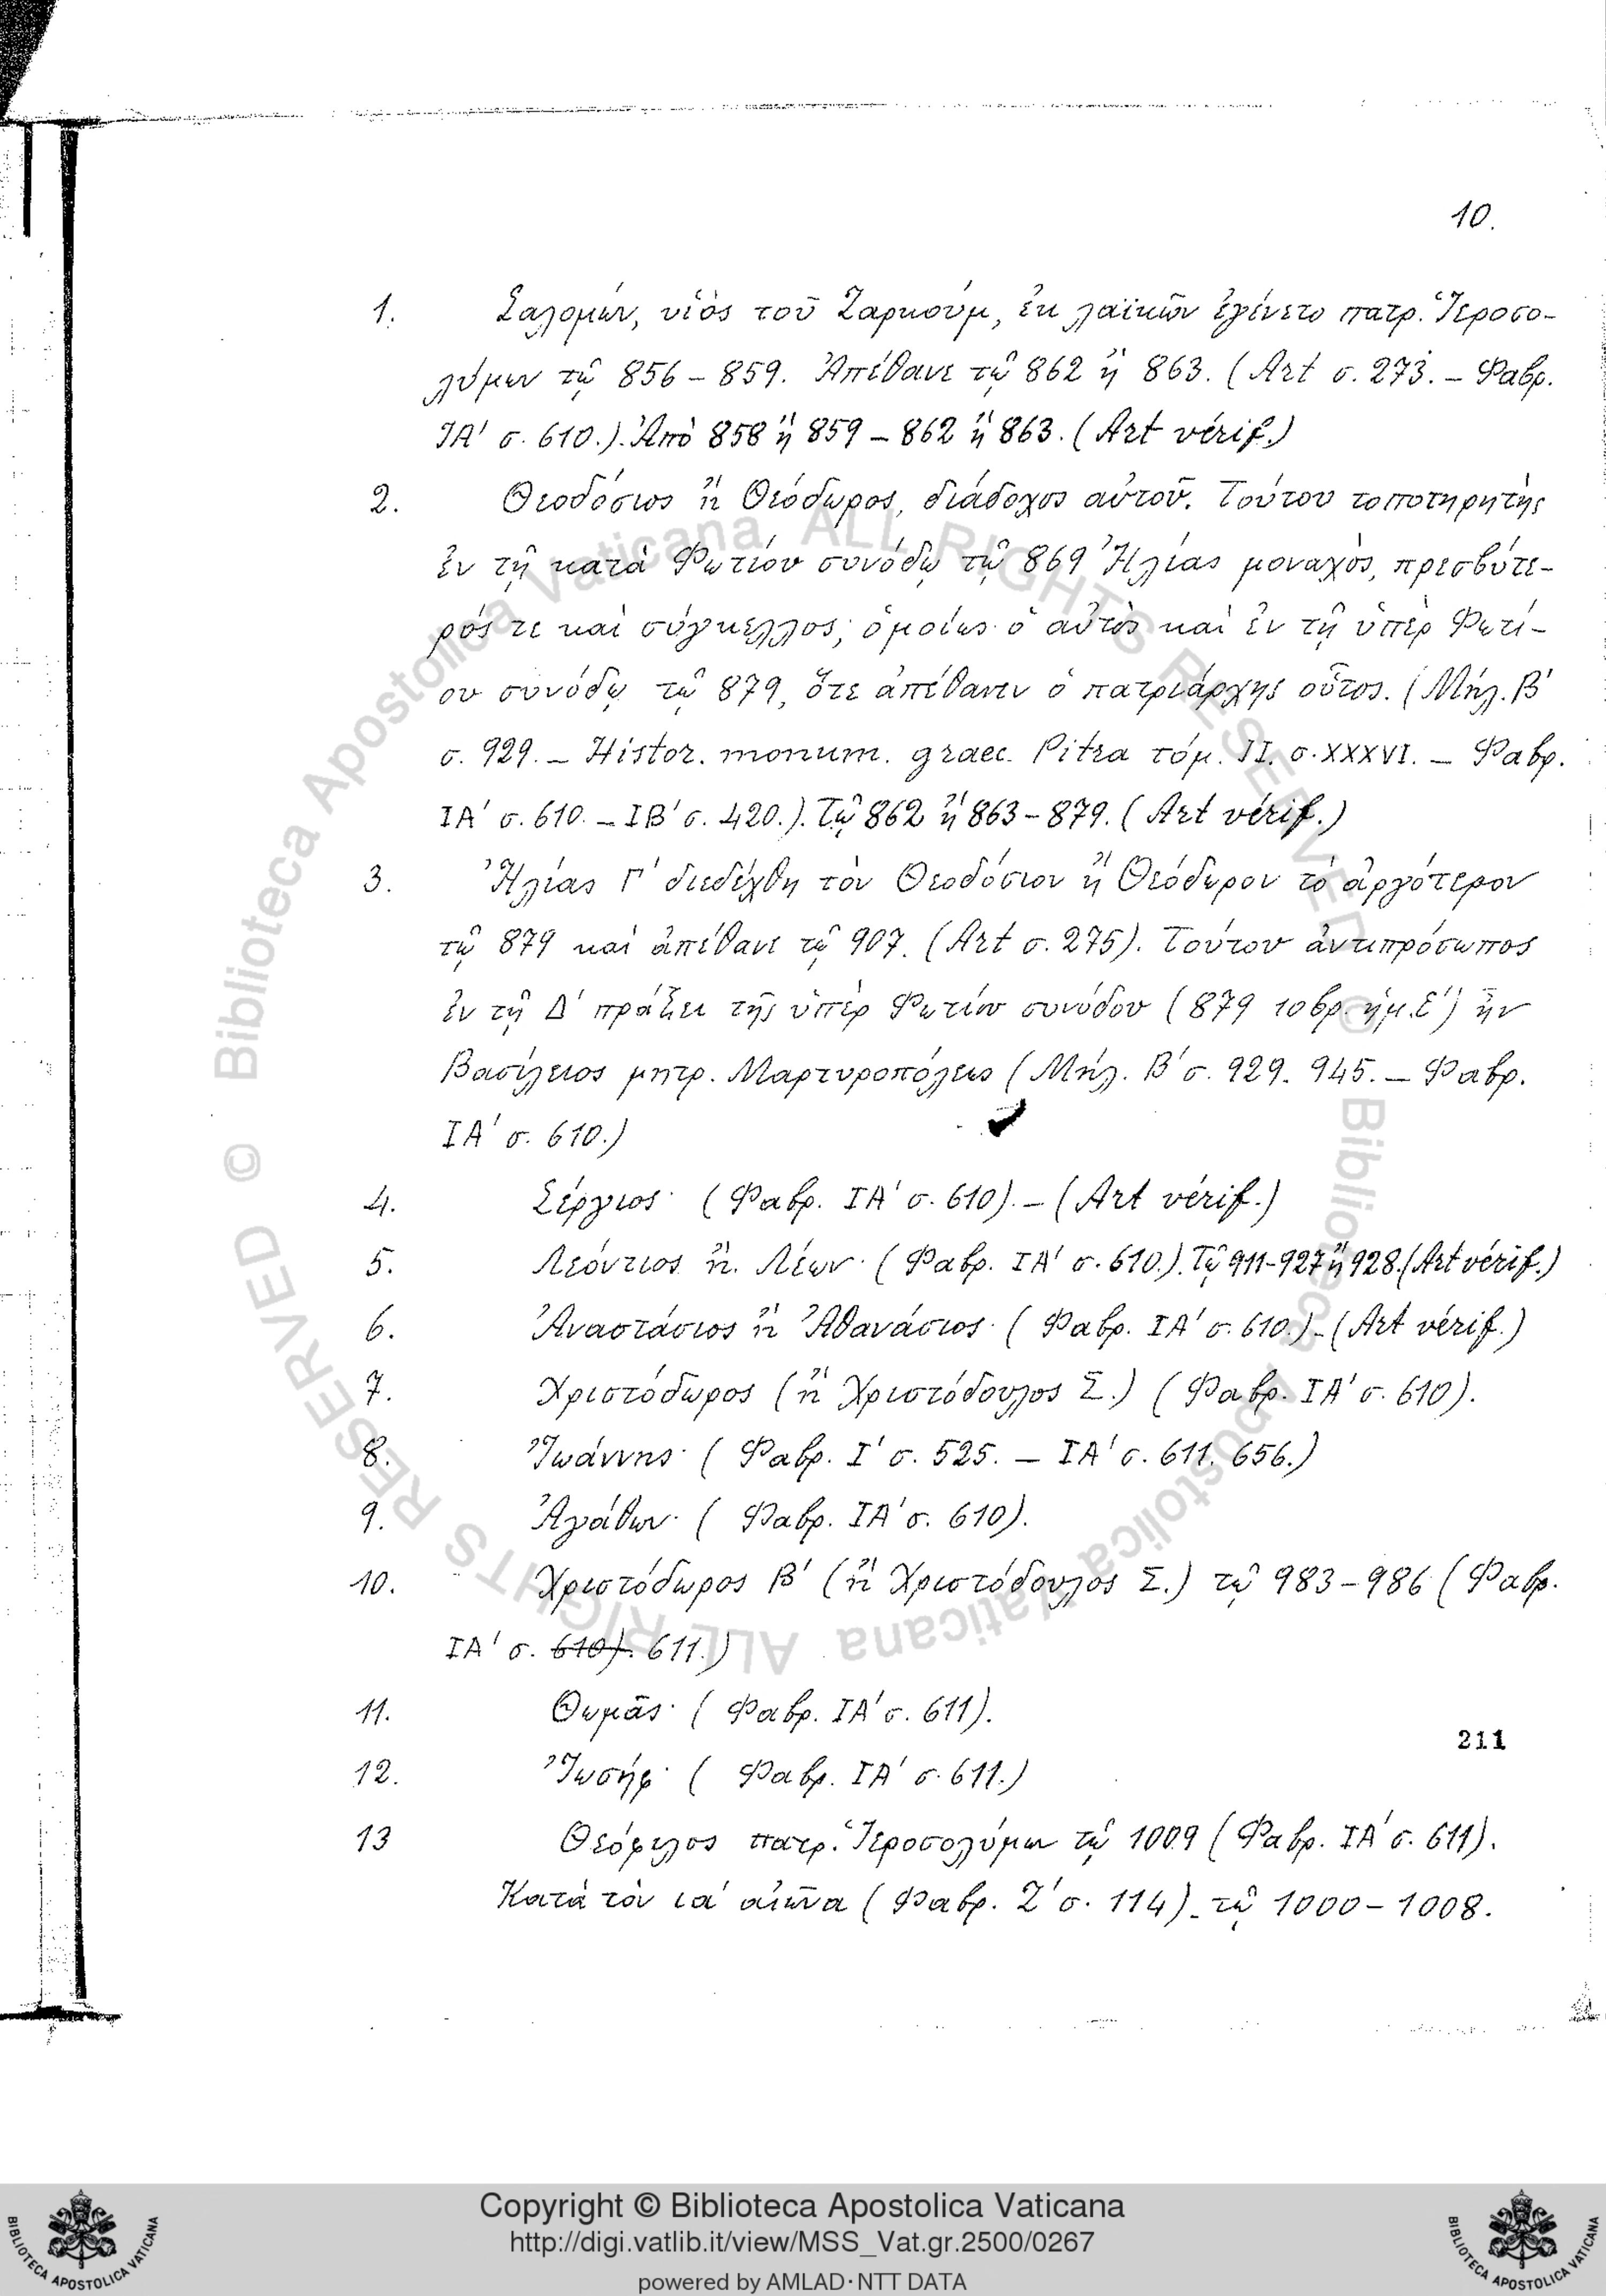 10.
1. Σαλομών, υἱὸς τοῦ Ζαρκούμ, ἐκ λαϊκῶν ἐγένετο πατρ. Ἱεροσο-
λύμων τῷ 856 – 859. Ἀπέθανε τῷ 862 ἢ 863. (Art σ. 273. – Φαβρ.
ΙΑ΄ σ. 610.). Ἀπὸ 858 ἢ 859 – 862 ἢ 863. (Art vérif.)
2. Θεοδόσιος ἢ Θεόδωρος, διάδοχος αὐτοῦ. Τούτου τοποτηρητὴς
ἐν τῇ κατὰ Φωτίου συνόδῳ τῷ 869 Ἠλίας μοναχὸς, πρεσβύτε-
ρός τε καὶ σύγκελλος, ὁμοίως ὁ αὐτὸς καὶ ἐν τῇ ὑπὲρ Φωτί-
ου συνόδῳ τῷ 879, ὅτε ἀπέθανεν ὁ πατριάρχης οὗτος. (Μήλ. Β΄
σ. 929. – Histor. monum. graec. Pitra τόμ. II. σ. XXXVI. – Φαβρ.
ΙΑ΄ σ. 610. – ΙΒ΄ σ. 420.). Τῷ 862 ἢ 863 – 879. (Art vérif.)
3. Ἠλίας Γ΄ διεδέχθη τὸν Θεοδόσιον ἢ Θεόδωρον τὸ ἀργότερον
τῷ 879 καὶ ἀπέθανε τῷ 907. (Art σ. 275). Τούτου ἀντιπρόσωπος
ἐν τῇ Δ΄ πράξει τῆς ὑπὲρ Φωτίου συνόδου (879 10βρ. ἡμ. Ε΄) ἦν
Βασίλειος μητρ. Μαρτυροπόλεως (Μήλ. Β΄ σ. 929. 945. – Φαβρ.
ΙΑ΄ σ. 610.)
4. Σέργιος· (Φαβρ. ΙΑ΄ σ. 610). – (Art vérif.)
5. Λεόντιος ἢ Λέων· (Φαβρ. ΙΑ΄ σ. 610.). Τῷ 911-927 ἢ 928. (Art vérif.)
6. Ἀναστάσιος ἢ Ἀθανάσιος· (Φαβρ. ΙΑ΄ σ. 610.) – (Art vérif.)
7. Χριστόδωρος (ἢ Χριστόδουλος Σ.) (Φαβρ. ΙΑ΄ σ. 610).
8. Ἰωάννης· (Φαβρ. Ι΄ σ. 525. – ΙΑ΄ σ. 611. 656.)
9. Ἀγάθων· (Φαβρ. ΙΑ΄ σ. 610).
10. Χριστόδωρος Β΄ (ἢ Χριστόδουλος Σ.) τῷ 983 – 986 (Φαβρ.
ΙΑ΄ σ. 610). 611.)
11. Θωμᾶς· (Φαβρ. ΙΑ΄ σ. 611).
211
12. Ἰωσήφ· (Φαβρ. ΙΑ΄ σ. 611.)
13 Θεόφιλος πατρ. Ἱεροσολύμων τῷ 1009 (Φαβρ. ΙΑ΄ σ. 611).
Κατὰ τὸν ια΄ αἰῶνα (Φαβρ. Ζ΄ σ. 114). τῷ 1000 – 1008.
© Biblioteca Apostolica Vaticana ALL RIGHTS RESERVED
© Biblioteca Apostolica Vaticana ALL RIGHTS RESERVED
Copyright © Biblioteca Apostolica Vaticana
http://digi.vatlib.it/view/MSS_Vat.gr.2500/0267
powered by AMLAD·NTT DATA
BIBLIOTECA APOSTOLICA VATICANA
BIBLIOTECA APOSTOLICA VATICANA